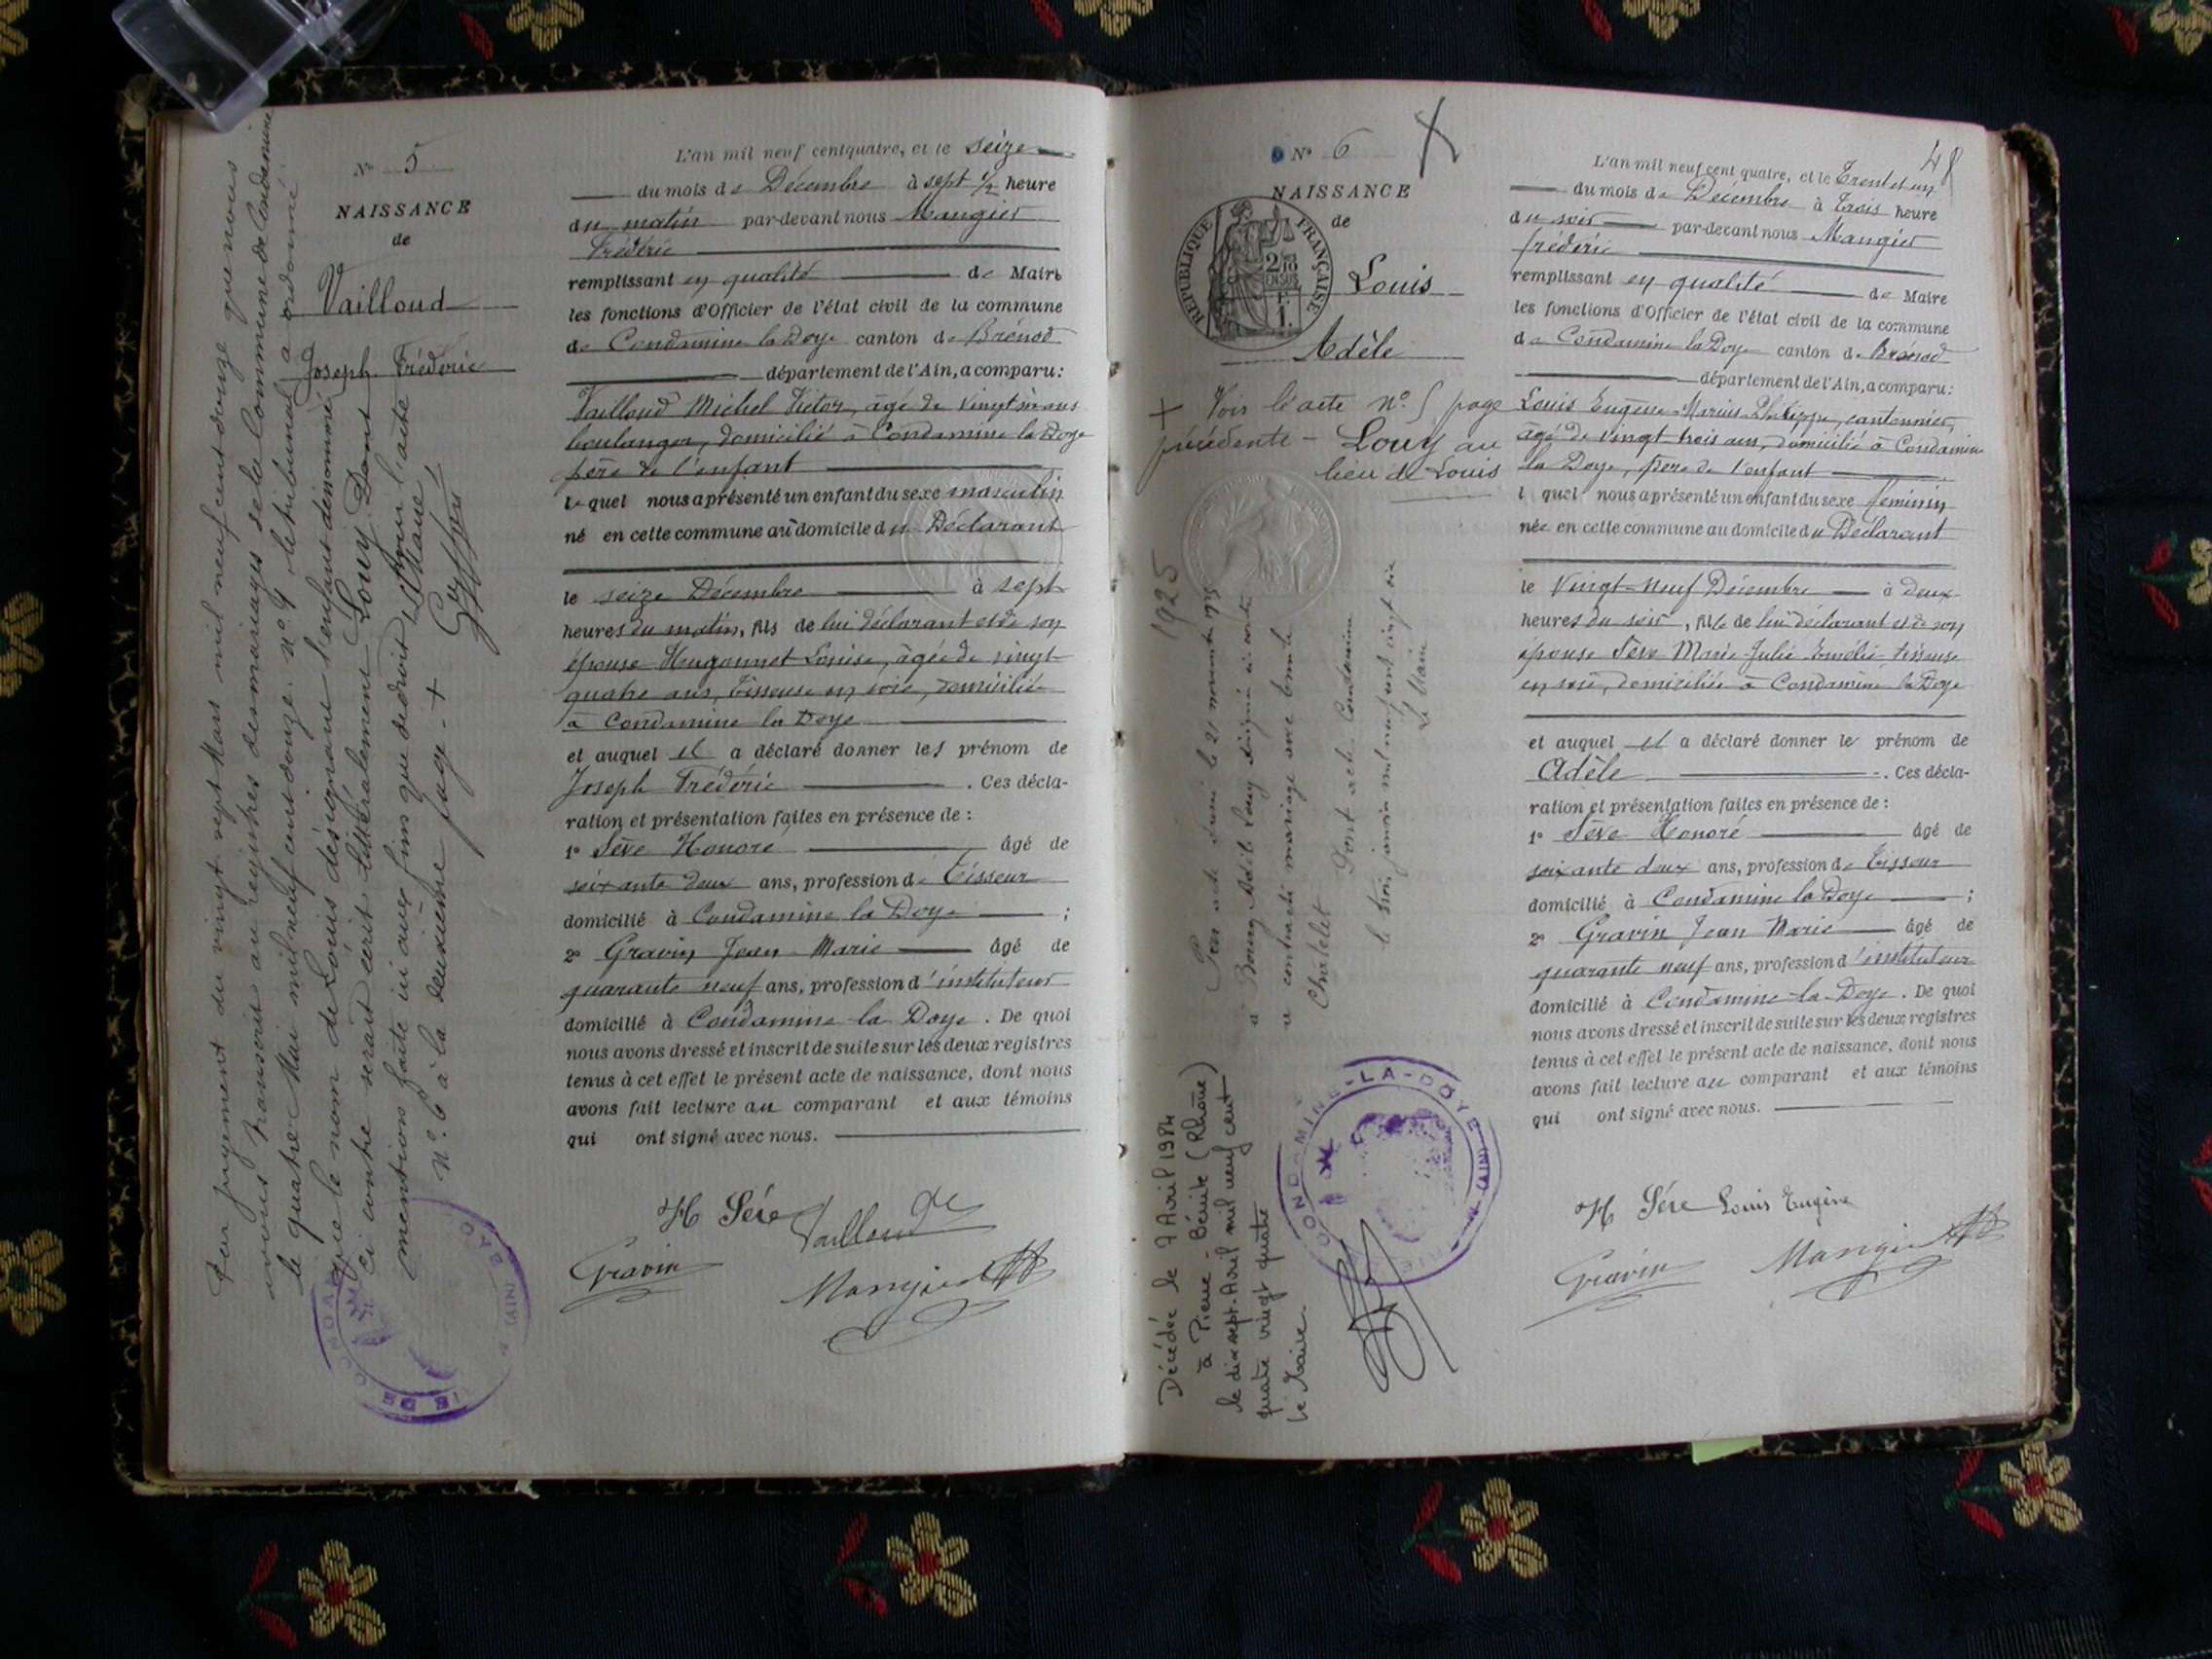 N° 5
NAISSANCE
de
Vailloud
Joseph Frédéric
Par jugement du vingt sept Mars mil neuf cent douze que nous
avons transcrit au registre des mariages de la Commune de Condamine
le quatre Mai mil neuf cent douze n° 4 le tribunal a ordonné
que le nom de Louis désignant l'enfant dénommé
ci contre serait écrit littéralement Louy Dont
mention faite ici aux fins que de droit pour l'acte
n° 6 à la deuxième page - +
Le Maire
L'an mil neuf cent quatre, et le seize
du mois de Décembre à sept ½ heure
du matin par-devant nous Mangier
Frédéric
remplissant en qualité de Maire
les fonctions d'Officier de l'état civil de la commune
de Condamine la Doye canton de Brénod
département de l'Ain, a comparu:
Vailloud Michel Victor, âgé de vingt six ans
boulanger, domicilié à Condamine la Doye
père de l'enfant
lequel nous a présenté un enfant du sexe masculin
né en cette commune au domicile du Déclarant
le seize Décembre à sept
heures du matin, fils de lui déclarant et de son
épouse Hugonnet Louise, âgée de vingt
quatre ans, tisseuse en soie, domiciliée
à Condamine la Doye
et auquel il a déclaré donner les prénom de
Joseph Frédéric . Ces décla-
ration et présentation faites en présence de :
1° Sève Honoré âgé de
soixante deux ans, profession de Tisseur
domicilié à Condamine la Doye ;
2° Gravin Jean Marie âgé de
quarante neuf ans, profession d'instituteur
domicilié à Condamine la Doye . De quoi
nous avons dressé et inscrit de suite sur les deux registres
tenus à cet effet le présent acte de naissance, dont nous
avons fait lecture au comparant et aux témoins
qui ont signé avec nous.
H Séve Vailloud
Gravin Mangier
N° 6
48
NAISSANCE
de
REPUBLIQUE FRANÇAISE
Louis
Adèle
+ Voir l'acte N° 5 page
précédente - Louy au
lieu de Louis
1925
Par acte
à Bourg Adèle Louy
a contracté mariage avec
Chatelet Dont acte Condamine
le trois janvier mil neuf cent vingt six
Le Maire
Décédée le 7 Avril 1984
à Pierre-Bénite (Rhône)
le dix sept Avril mil neuf cent
quatre vingt quatre
Le Maire
CONDAMINE-LA-DOYE (AIN)
L'an mil neuf cent quatre, et le Trente et un
du mois de Décembre à Trois heure
du soir par-devant nous Mangier
frédéric
remplissant en qualité de Maire
les fonctions d'Officier de l'état civil de la commune
de Condamine la Doye canton de Brénod
département de l'Ain, a comparu:
Louis Eugène Marius Philippe, cantonnier,
âgé de vingt trois ans, domicilié à Condamine
la Doye, père de l'enfant
l quel nous a présenté un enfant du sexe féminin
née en cette commune au domicile du Déclarant
le Vingt-neuf Décembre à deux
heures du soir, fille de lui déclarant et de son
épouse Sève Marie Julie Emélie tisseuse
en soie, domiciliée à Condamine la Doye
et auquel il a déclaré donner le prénom de
Adèle . Ces décla-
ration et présentation faites en présence de :
1° Sève Honoré âgé de
soixante deux ans, profession de Tisseur
domicilié à Condamine la Doye ;
2° Gravin Jean Marie âgé de
quarante neuf ans, profession d'instituteur
domicilié à Condamine-la-Doye . De quoi
nous avons dressé et inscrit de suite sur les deux registres
tenus à cet effet le présent acte de naissance, dont nous
avons fait lecture au comparant et aux témoins
qui ont signé avec nous.
H Séve Louis Eugène
Gravin Mangier